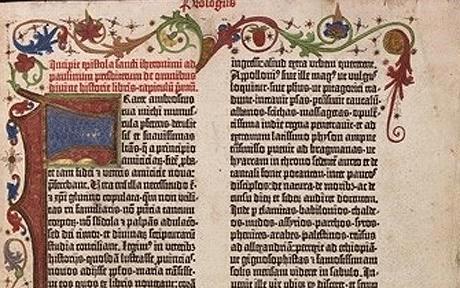 Prologus
Incipit epistola sancti iheronimi ad
paulinum presbiterum de omnibus
divine historie libris · capitulū pmū
Frater ambrosius
tua michi munuscula
pferens · detulit
sil et suavissimas
lrās · q̄ a principio
amiciciaꝝ · fidē ꝓba-
te iam fidei ⁊ veteris amicicie nova :
pferebant. Vera eni illa necessitudo ē ·
⁊ xpi glutino copulata · qm non vtili-
tas rei familiaris · nō pn̄cia tantum
corpoꝝ · nō sbdola ⁊ palpās adulacō ·
sed dei timor · et divinaꝝ scripturaꝝ
studia conciliant. Legim⁹ in veterib⁹
historijs · quosdā lustrasse ꝓvincias ·
novos adijsse pplos · maria trāsisse ·
ut eos quos ex libris noverant : corā
ingressᵉ aliud extra urbem quererent.
Apolloni⁹ sive ille mag⁹ ut vulgus
loquitur · sive phus · ut pitagorici tra-
dunt · intravit psas · ptrāsivit caucasū ·
albanos · scithas · massagetas · opulē-
tissima indie regna penetravit · et ad
extremum latissimo physon amne
trāsmisso puenit ad bragmanas · ut
hyarcam in throno sedētē aureo et de
tantali fonte potantem · inter paucos
discipulos · de natura · de moribᵒ · ac de
cursu dieꝝ et sideꝝ audiret docentem.
Inde p elamitas · babilonios · chalde-
os · medos · assyrios · parthos · syros ·
phenices · arabes · palestinos · reversus
ad allexandriā · perrexit ad ethiopiā ·
ut gignosophistas ⁊ famosissimam
solis mensam videret in sabulo. In-
venit ille vir ubiqᵉ qd disceret : et semp